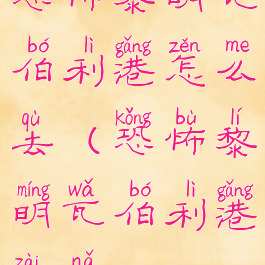 bó lì gǎng zěn me
伯利港怎么
qù kǒng bù lí
去（恐怖黎
míng wǎ bó lì gǎng
明瓦伯利港
zài nǎ